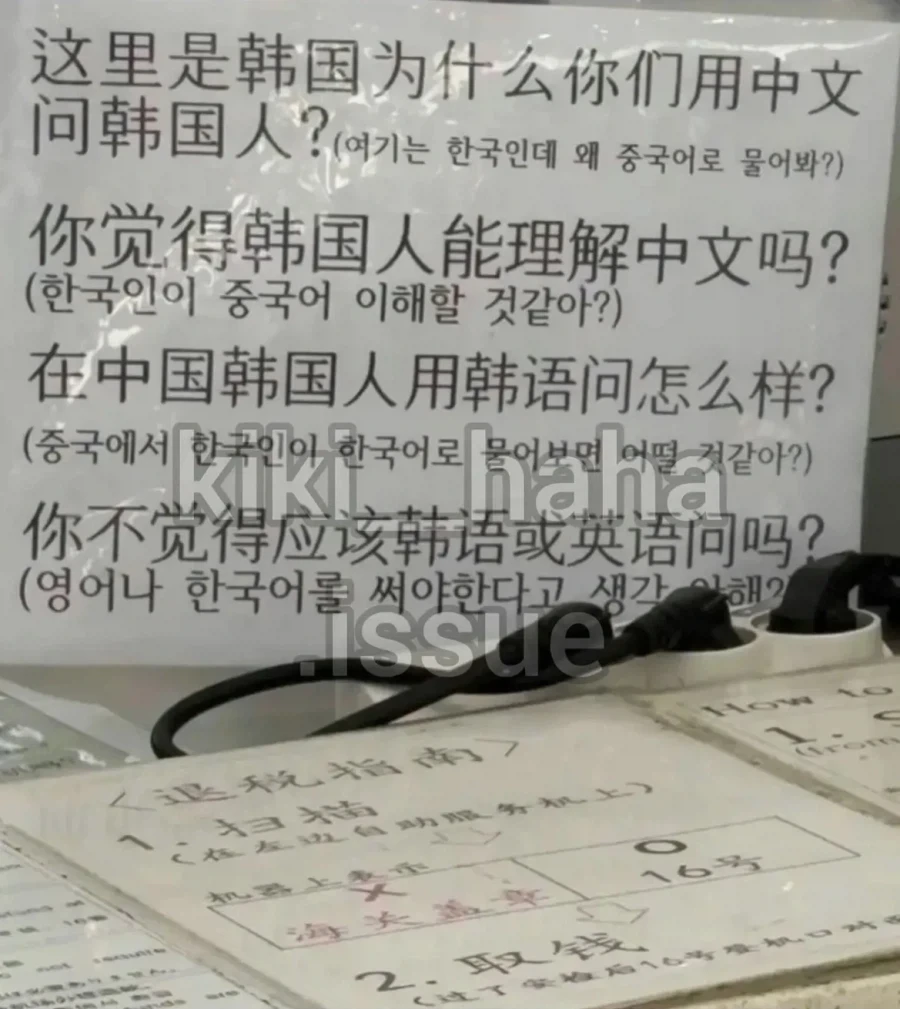 这里是韩国为什么你们用中文
问韩国人?(여기는 한국인데 왜 중국어로 물어봐?)
你觉得韩国人能理解中文吗?
(한국인이 중국어 이해할 것같아?)
在中国韩国人用韩语问怎么样?
(중국에서 한국인이 한국어로 물어보면 어떨 것같아?)
你不觉得应该韩语或英语问吗?
(영어나 한국어를 써야한다고 생각
kiki__haha
.issue
<退税指南>
1. 扫描
(在左边自助服务机上)
机器上表示
X
海关盖章
O
16号
2. 取钱
How to
1. S
(from
not require